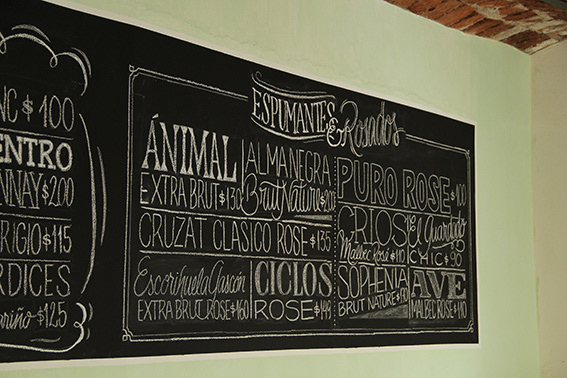 NC $100
ENTRO
NNAY $200
RIGIO $115
RDICES
ariño $125
ESPUMANTES
& Rosados
ÁNIMAL
EXTRA BRUT $130
ALMANEGRA
Brut Nature $200
CRUZAT CLASICO ROSE $135
Escorihuela Gascón
EXTRA BRUT ROSE $160
CICLOS
ROSE $149
PURO ROSE $100
CRIOS
Malbec Rosé $110
Guardado
CHIC $90
SOPHENIA
BRUT NATURE $170
AVE
MALBEC ROSE $110